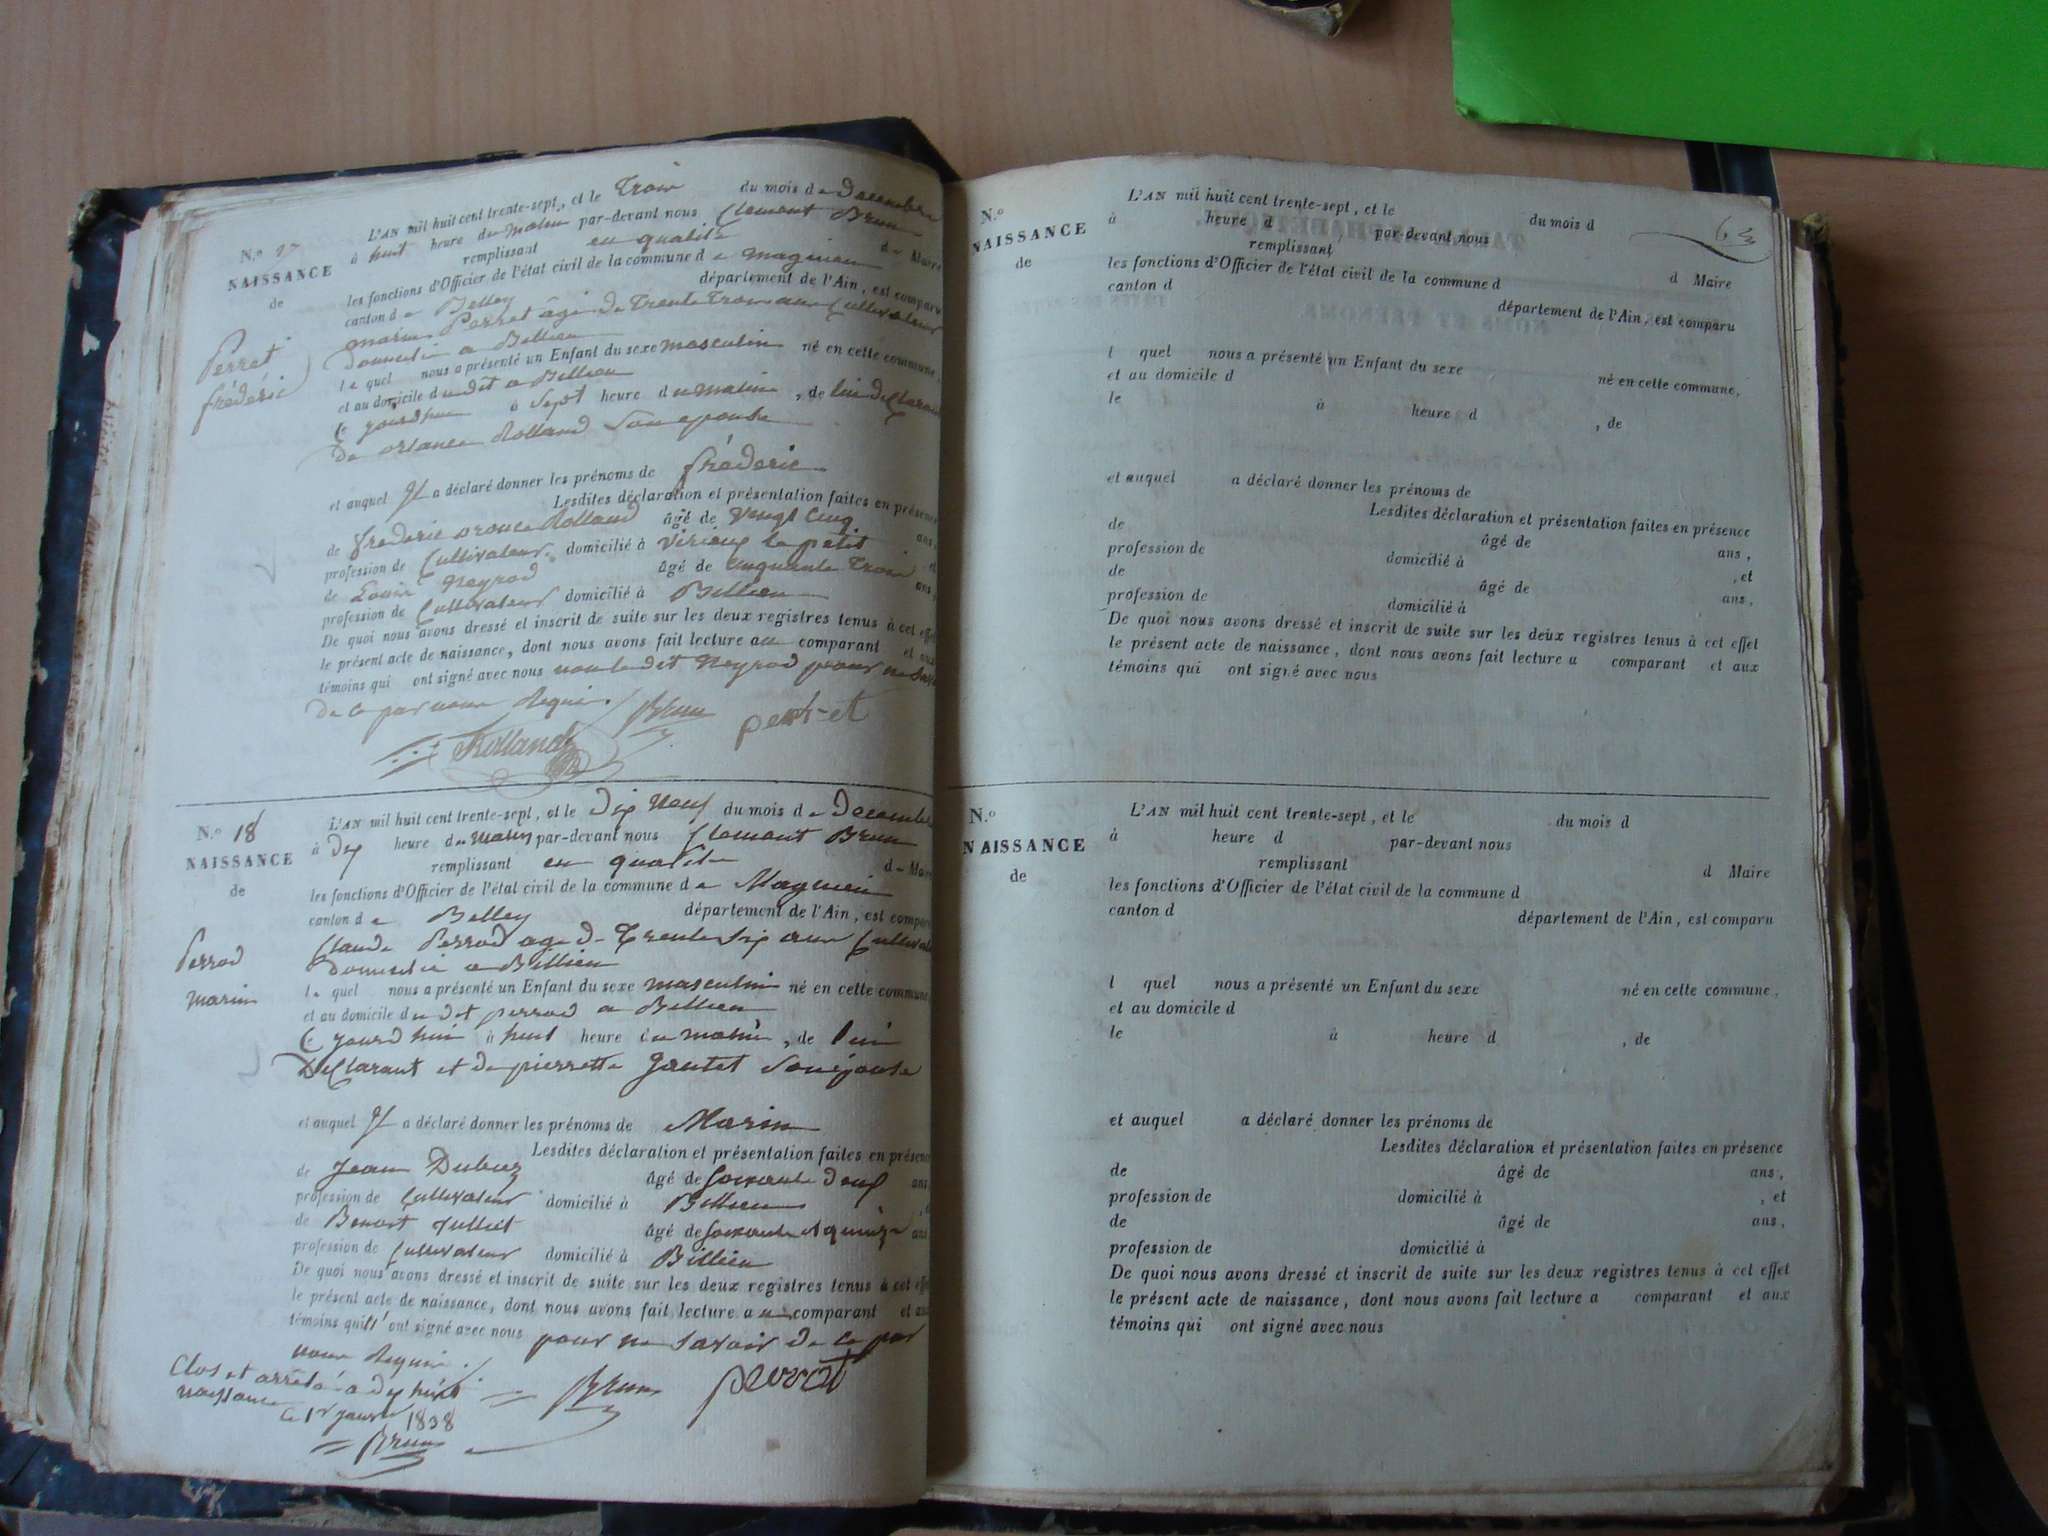 N.º 17
NAISSANCE
de
Perret
frédéric
L'AN mil huit cent trente-sept, et le Trois du mois de Decembre
à huit heure du matin par-devant nous Clement Brun
remplissant en qualité de Maire
les fonctions d'Officier de l'état civil de la commune de magnieu
canton de Belley département de l'Ain, est comparu
marin Perret âgé de Trente Trois ans Cultivateur
Domicilié a Billieu
le quel nous a présenté un Enfant du sexe masculin né en cette commune,
et au domicile du dit a Billieu
Ce jourdhui à Sept heure du matin, de lui declarant
De Rolland Son epouse
et auquel Il a déclaré donner les prénoms de frédéric
Lesdites déclaration et présentation faites en présence
de frederic Rolland âgé de vingt Cinq ans,
profession de Cultivateur domicilié à Virieux le petit, et
de Louis Neyrod âgé de Cinquante Trois ans,
profession de Cultivateur domicilié à Billieu
De quoi nous avons dressé et inscrit de suite sur les deux registres tenus à cet effet
le présent acte de naissance, dont nous avons fait lecture au comparant et aux
témoins qui ont signé avec nous non le dit Neyrod pour ne savoir
De ce par nous Requis.
Brun
perret
Rolland
N.º 18
NAISSANCE
de
Perrod
marin
L'AN mil huit cent trente-sept, et le Dix neuf du mois de Decembre
à Dix heure du matin par-devant nous Clemont Brun
remplissant en qualité de Maire
les fonctions d'Officier de l'état civil de la commune de Magnieu
canton de Belley département de l'Ain, est comparu
Claude Perrod age de Trente six ans Cultivateur
Domicilié a Billieu
le quel nous a présenté un Enfant du sexe masculin né en cette commune
et au domicile du dit perrod a Billieu
Ce jourd'hui à huit heure du matin, de lui
Declarant et de pierrette Gautet son épouse
et auquel Il a déclaré donner les prénoms de Marin
Lesdites déclaration et présentation faites en présence
de Jean âgé de Soixante Deux ans
profession de Cultivateur domicilié à Billieu
de Benoit Julliet âgé de Soixante et quinze ans
profession de Cultivateur domicilié à Billieu
De quoi nous avons dressé et inscrit de suite sur les deux registres tenus à cet effet
le présent acte de naissance, dont nous avons fait lecture au comparant et aux
témoins qui ont signé avec nous pour ne savoir de ce par
nous Requis.
Brun
perrot
Clos et arrêté a dix huit
naissance
Ce 1er janvier 1838
Brun
63
N.º
NAISSANCE
de
L'AN mil huit cent trente-sept, et le du mois d
à heure d par-devant nous
remplissant
d Maire
les fonctions d'Officier de l'état civil de la commune d
canton d département de l'Ain, est comparu
l quel nous a présenté un Enfant du sexe né en cette commune,
et au domicile d
le à heure d , de
et auquel a déclaré donner les prénoms de
Lesdites déclaration et présentation faites en présence
de âgé de ans,
profession de domicilié à , et
de âgé de ans,
profession de domicilié à
De quoi nous avons dressé et inscrit de suite sur les deux registres tenus à cet effet
le présent acte de naissance, dont nous avons fait lecture a comparant et aux
témoins qui ont signé avec nous
N.º
NAISSANCE
de
L'AN mil huit cent trente-sept, et le du mois d
à heure d par-devant nous
remplissant d Maire
les fonctions d'Officier de l'état civil de la commune d
canton d département de l'Ain, est comparu
l quel nous a présenté un Enfant du sexe né en cette commune,
et au domicile d
le à heure d , de
et auquel a déclaré donner les prénoms de
Lesdites déclaration et présentation faites en présence
de âgé de ans,
profession de domicilié à , et
de âgé de ans,
profession de domicilié à
De quoi nous avons dressé et inscrit de suite sur les deux registres tenus à cet effet
le présent acte de naissance, dont nous avons fait lecture a comparant et aux
témoins qui ont signé avec nous